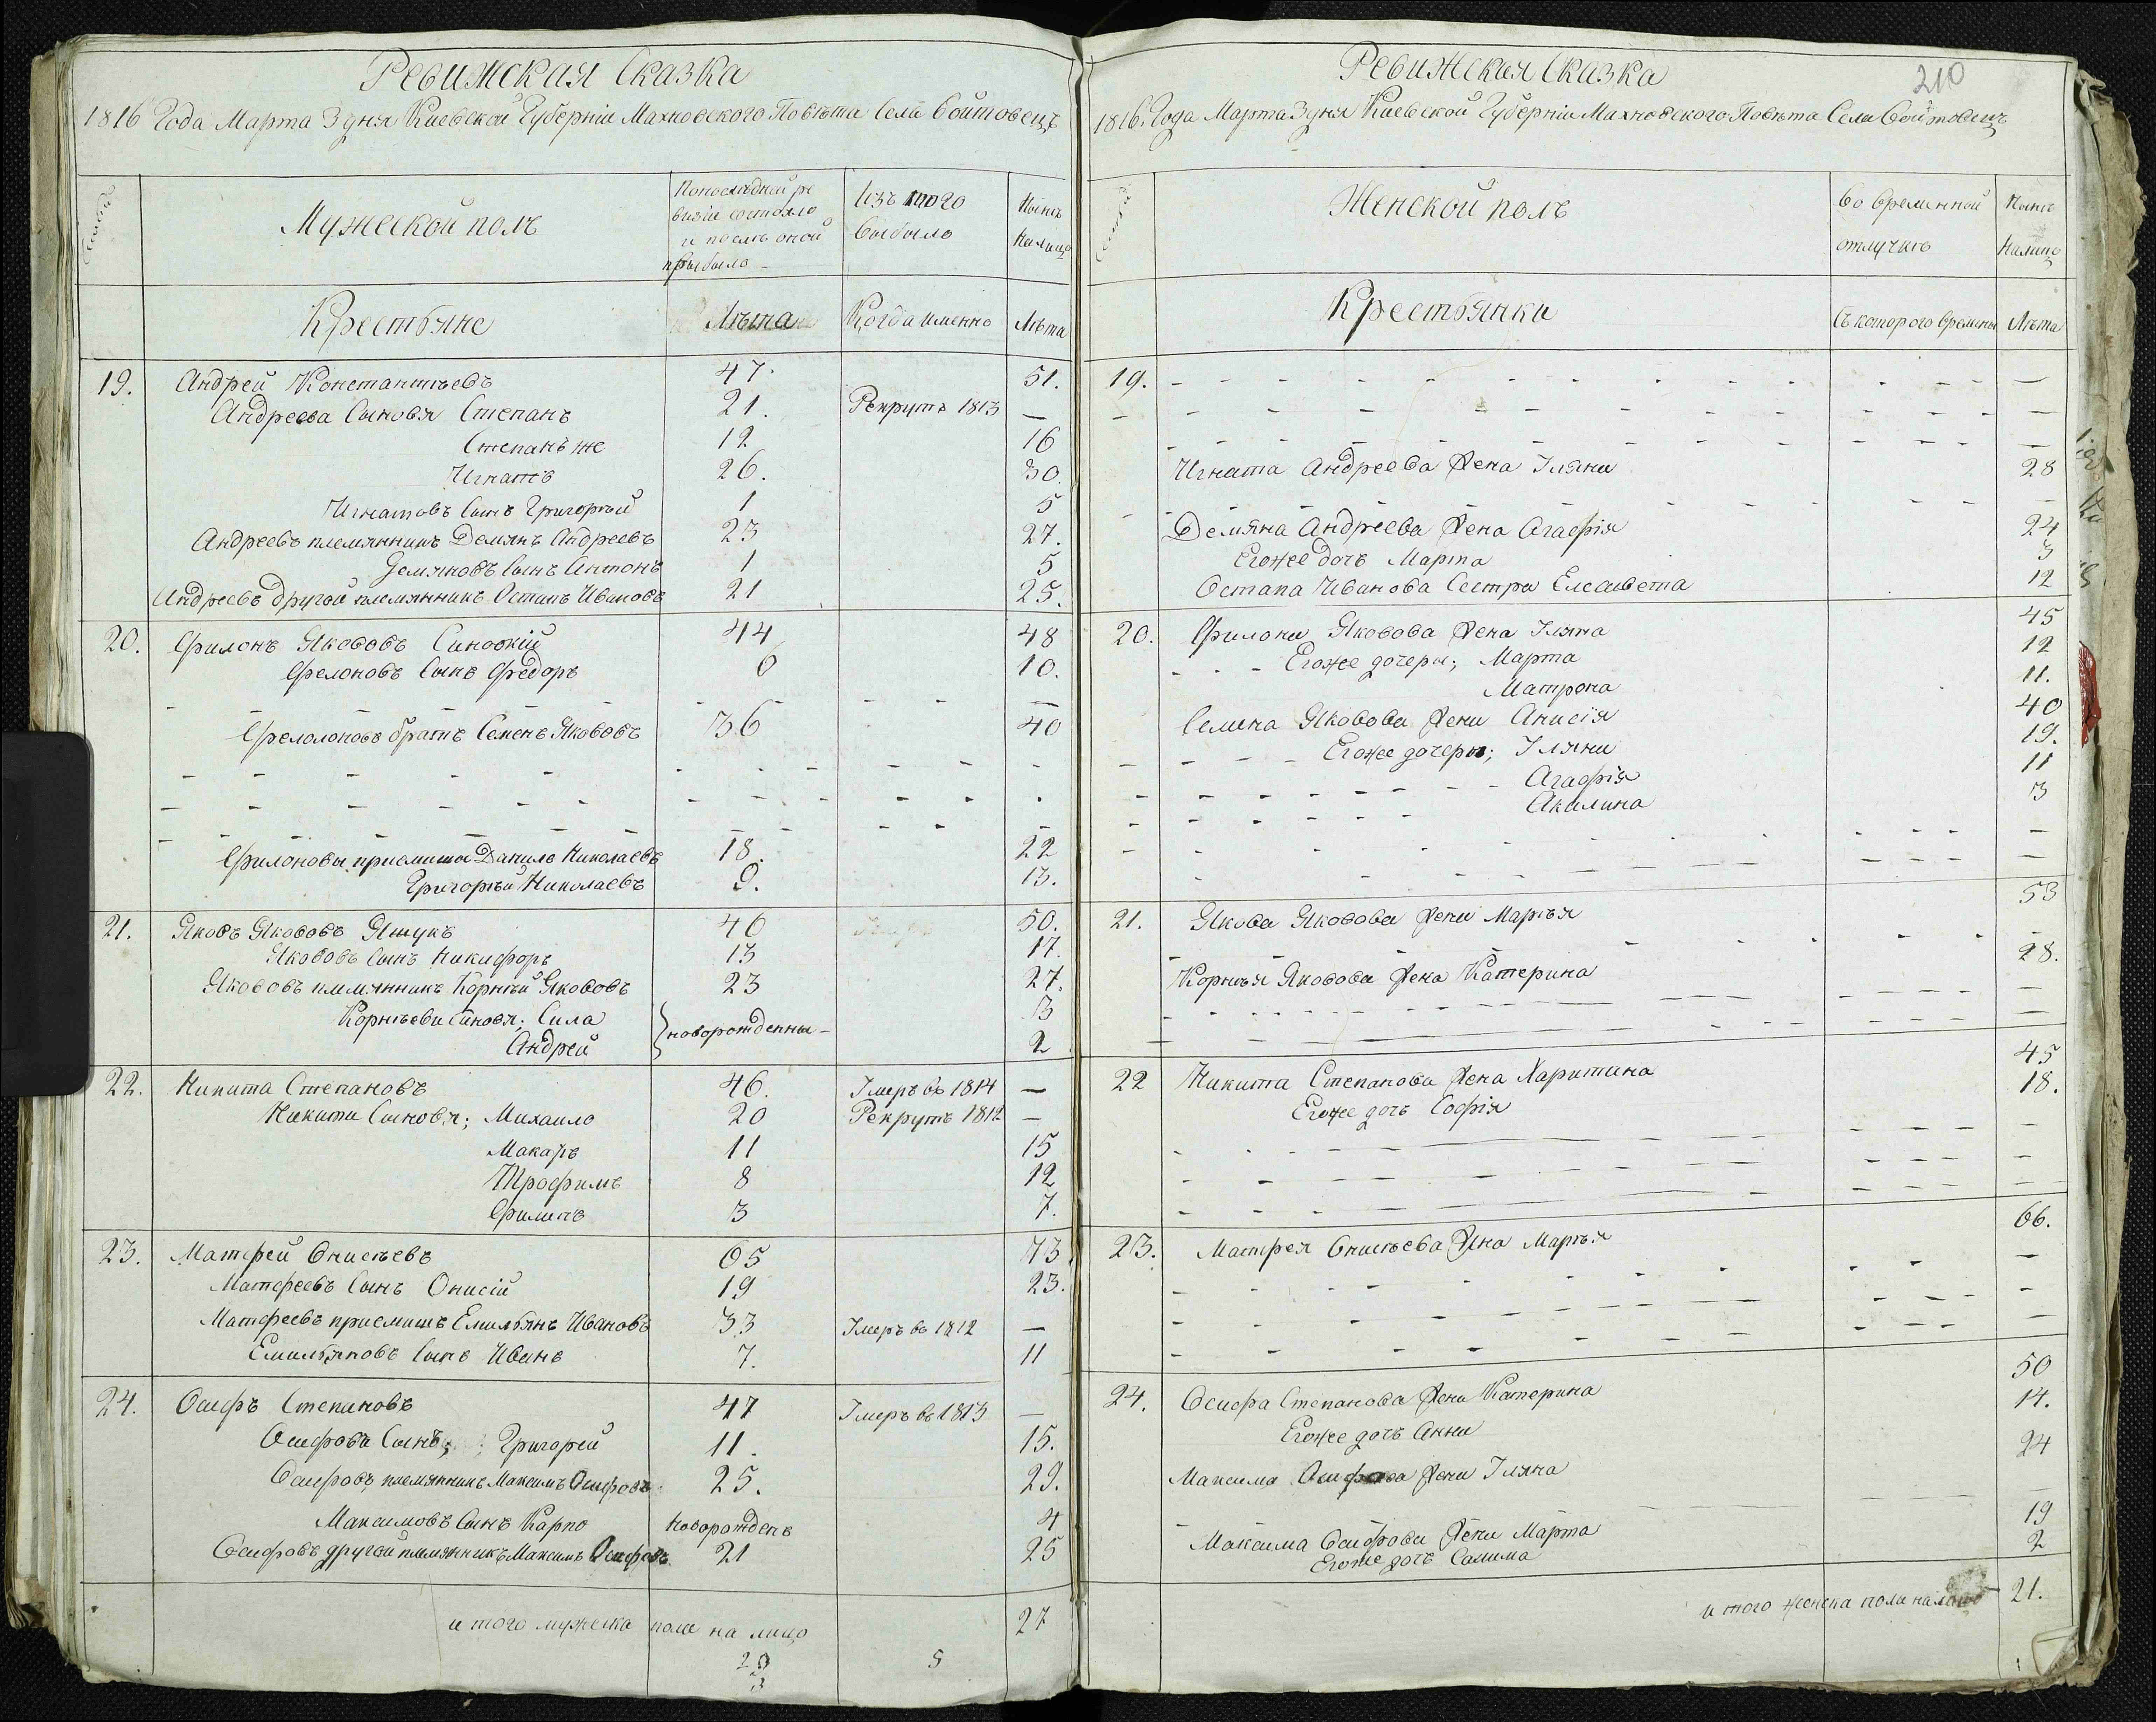 Ревижская Сказка
1816 Года Марта 3 дня Киевской Губерніи Махновского Повѣта Села Войтовецъ
Мужеской полъ
По последней ре
визіи состояло
и послѣ оной
прибыло
Изъ того
выбыло
Нынѣ
на лицо
Крестьяне
Лѣта
Когда именно
Лѣта
19. Андрей Константѣевъ 47. 51.
Андреева Сыновя Степанъ 21. Рекрутъ 1813 —
Степанъ же 12 16
Игнатъ 26. 30.
Игнатовъ сынъ Григорѣй 1 5
Андреевъ племянникъ Демянъ Андреевъ 23 27.
Демяновъ сынъ Антонъ 1 5
Андреевъ другой племянникъ Остапъ Ивановъ 21 25.
20. Филонъ Якововъ 44 48
Фелоновъ сынъ Федоръ 6 10.
братъ Семенъ Якововъ 36 40
Филоновы приемыши Данило Николаевъ 18. 22
Григорѣй Николаевъ 9. 13.
21. Яковъ Якововъ Ящукъ 46 50.
Якововъ сынъ Никифоръ 13 17.
Якововъ племянникъ Корнѣй Якововъ 23 27.
Корнѣеви Сыновя; Сила новорожденны 3
Андрей 2
22. Никита Степановъ 46. Умеръ въ 1814 —
Никити Сыновя; Михаило 20 Рекрутъ 1812 —
Макаръ 11 15
Трофимъ 8 12
Филипъ 3 7.
23. Матфей Онисѣевъ 65 73.
Матфеевъ сынъ Онисій 19 23.
Матфеевъ приемишъ Емильянъ Ивановъ 33 Умеръ въ 1812 —
Емильяновъ сынъ Иванъ 7. 11
24. Осифъ Степановъ 47 Умеръ въ 1813 —
Осифова Сынъ; Григорей 11. 15.
Осифовъ племянникъ Максимъ Осифовъ 25. 29.
Максимовъ сынъ Карпо новорожденъ 4
Осифовъ другой племянникъ Максимъ Осифовъ 21 25
и того мужеска пола на лицо 27
5
Ревижская Сказка
210
1816. Года Марта 3 дня Киевской Губерніи Махновского Повѣта Села Войтовецъ
Женской полъ
Во временной
отлучкѣ
Нынѣ
налицо
Крестьянки
Съ которого времены
Лѣта
19.
Игната Андреева жена Уляна 28
Демяна Андреева жена Агафія 24
Егоже дочь Марта 3
Остапа Иванова Сестра Елесавета 12
20. Филона Яковова жена Уляна 45
Егоже дочеры; Марта 12
Матрона 11.
Семена Яковова жена Анисія 40
Егоже дочеры; Уляна 19.
Агафія 11
Акилина 3
21. Якова Яковова жена Марѣя 53
Корнѣя Яковова жена Катерина 28.
22 Никита Степанова жена Харитина 45
Егоже дочь Софія 18.
23. Матфея Онисѣева жена Марѣя 66.
24. Осифа Степанова жена Катерина 50
Егоже дочь Анна 14.
Максима Осифова жена Уляна 24
Максима Осифова жена Марта 19
Егоже дочь 2
и того женска пола на лицо 21.